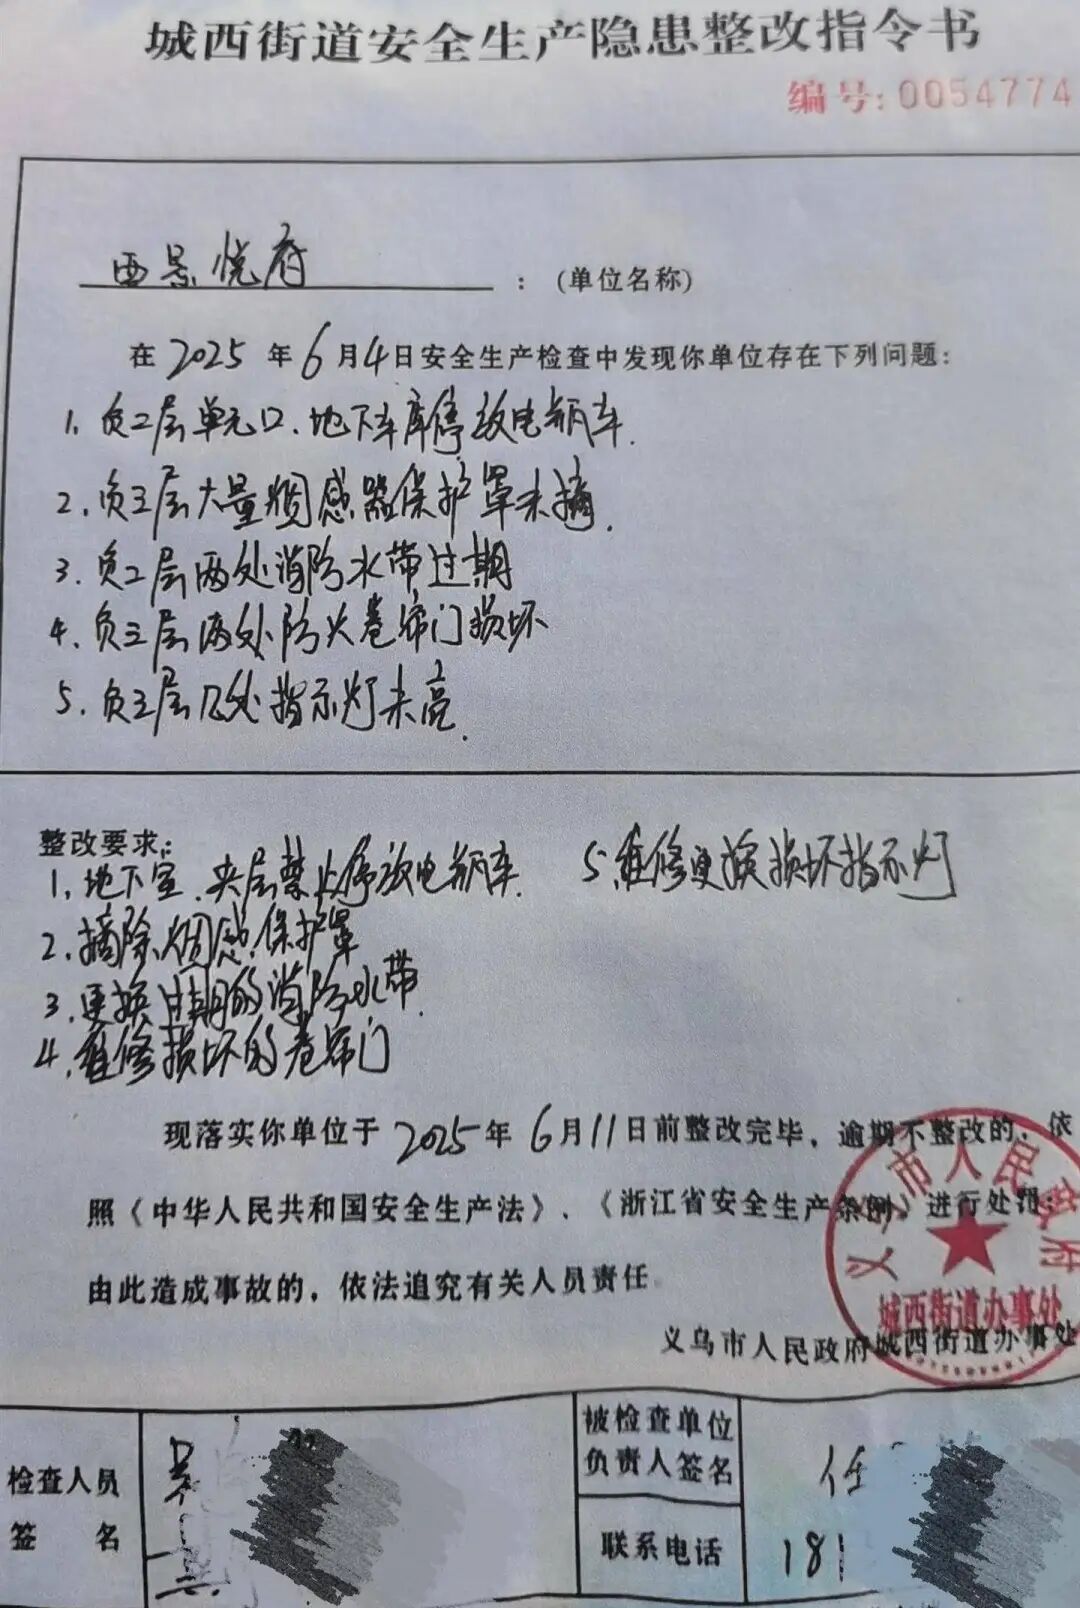 城西街道安全生产隐患整改指令书
编号:0054774
西景悦府 : (单位名称)
在2025年6月4日安全生产检查中发现你单位存在下列问题:
1. 负二层单元口、地下车库停放电瓶车.
2. 负三层大量烟感器保护罩未摘.
3. 负二层两处消防水带过期
4. 负三层两处防火卷帘门损坏
5. 负三层几处指示灯未亮.
整改要求:
1. 地下室、夹层禁止停放电瓶车. 5. 维修更换损坏指示灯
2. 摘除烟感保护罩
3. 更换过期的消防水带.
4. 维修损坏的卷帘门
现落实你单位于2025年6月11日前整改完毕,逾期不整改的,依
照《中华人民共和国安全生产法》、《浙江省安全生产条例》进行处罚;
由此造成事故的,依法追究有关人员责任.
义乌市人民政府城西街道办事处
义乌市人民政府
城西街道办事处
检查人员
签 名
被检查单位
负责人签名
任
联系电话
181